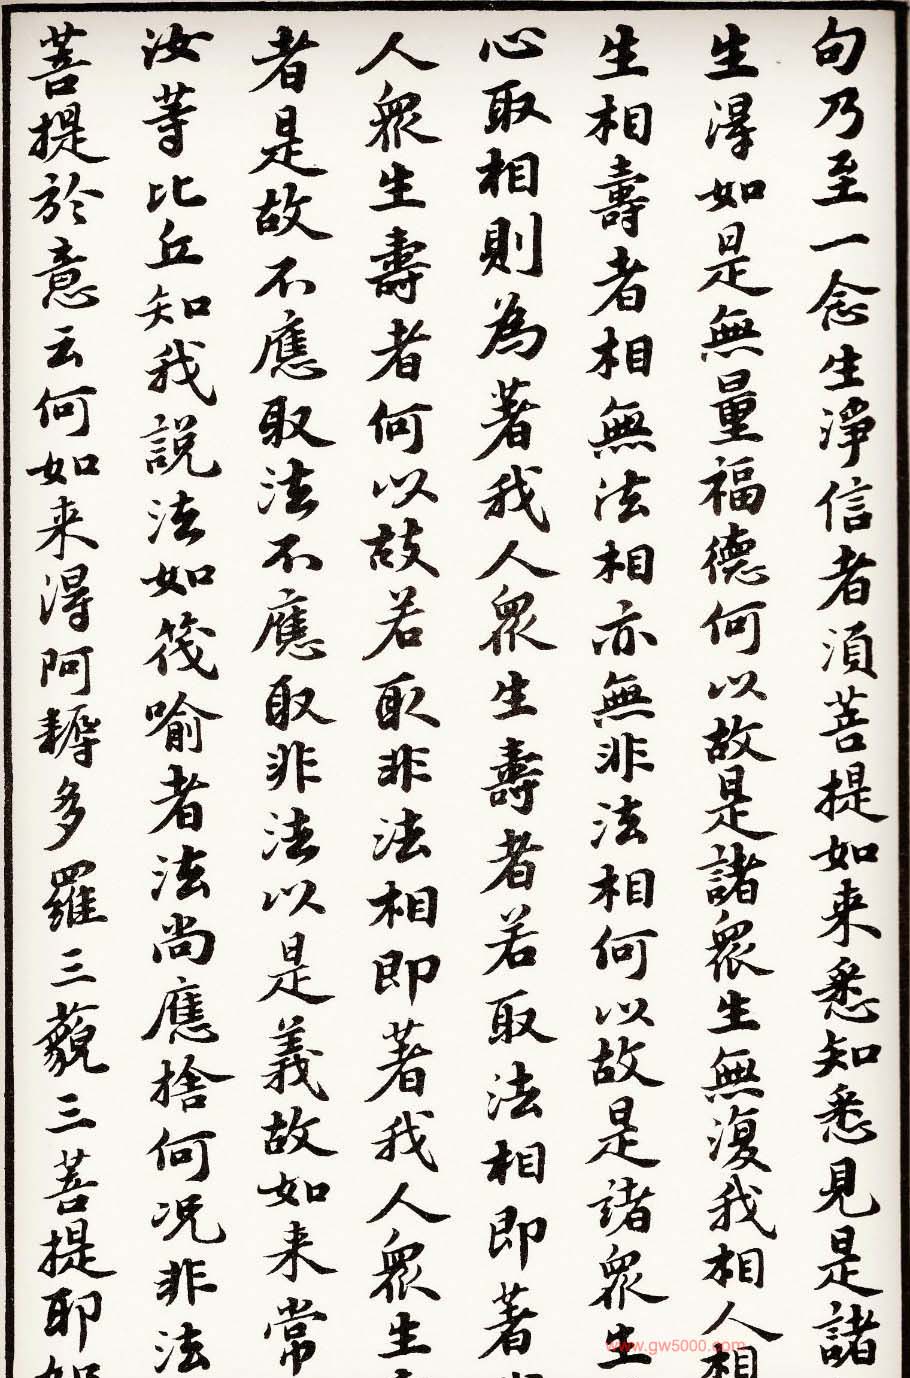 句乃至一念生淨信者須菩提如来悉知悉見是諸
生得如是無量福德何以故是諸眾生無復我相人相
生相壽者相無法相亦無非法相何以故是諸眾生
心取相則為著我人眾生壽者若取法相即著
人眾生壽者何以故若取非法相即著我人眾生
者是故不應取法不應取非法以是義故如来常
汝等比丘知我說法如筏喻者法尚應捨何況非法
菩提於意云何如来得阿耨多羅三藐三菩提耶
www.gw5000.com